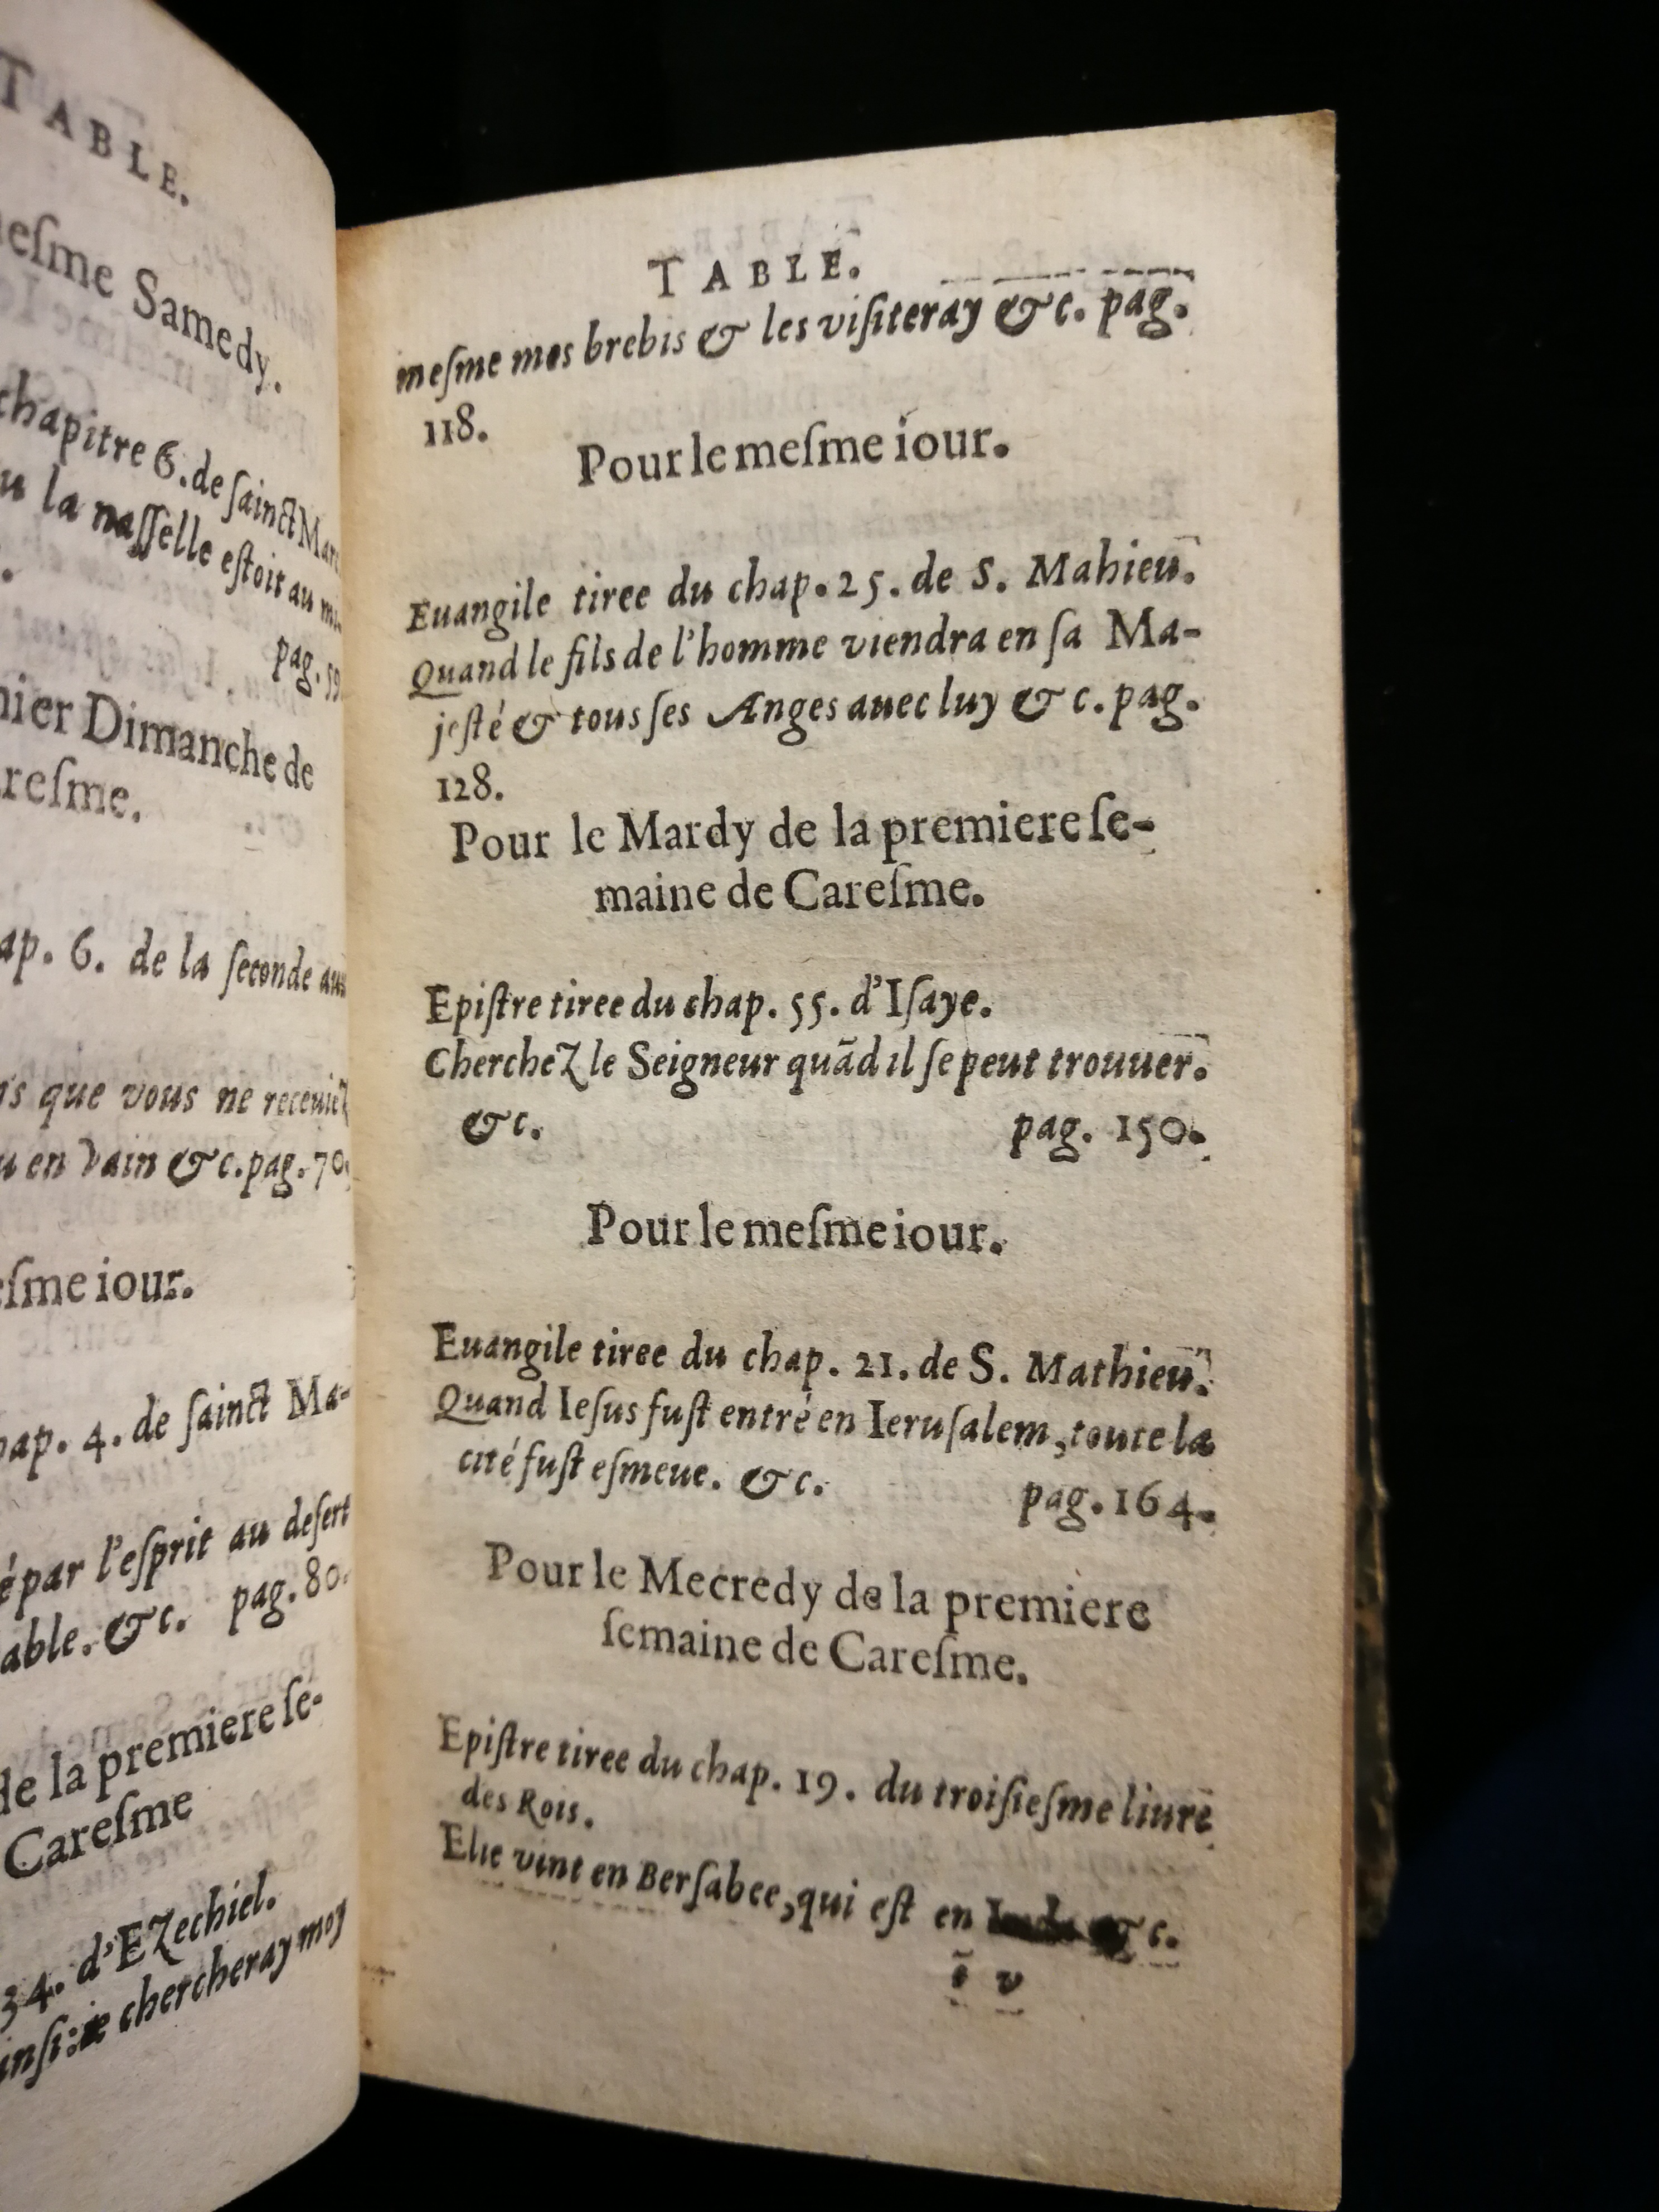 TABLE.
mesme Samedy.
chapitre 6. de sainct Marc
la nasselle estoit au mi-
pag. 59
Dimanche de
resme.
ap. 6. de la seconde aux
que vous ne receuiez
en vain &c. pag. 70.
esme iour.
ap. 4. de sainct Ma-
par l'esprit au desert
able. &c. pag. 80.
de la premiere se-
Caresme
34. d'Ezechiel.
chercheray moy
TABLE.
mesme mes brebis & les visiteray &c. pag.
118.
Pour le mesme iour.
Euangile tiree du chap. 25. de S. Mahieu.
Quand le fils de l'homme viendra en sa Ma-
jesté & tous ses Anges auec luy & c. pag.
128.
Pour le Mardy de la premiere se-
maine de Caresme.
Epistre tiree du chap. 55. d'Isaye.
Cherchez le Seigneur quãd il se peut trouuer.
&c. pag. 150.
Pour le mesme iour.
Euangile tiree du chap. 21. de S. Mathieu.
Quand Iesus fust entré en Ierusalem, toute la
cité fust esmeue. &c. pag. 164.
Pour le Mecredy de la premiere
semaine de Caresme.
Epistre tiree du chap. 19. du troisiesme liure
des Rois.
Elie vint en Bersabee, qui est en Iuda &c.
v